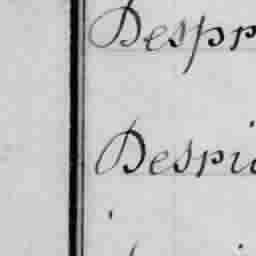 Despr
Despi